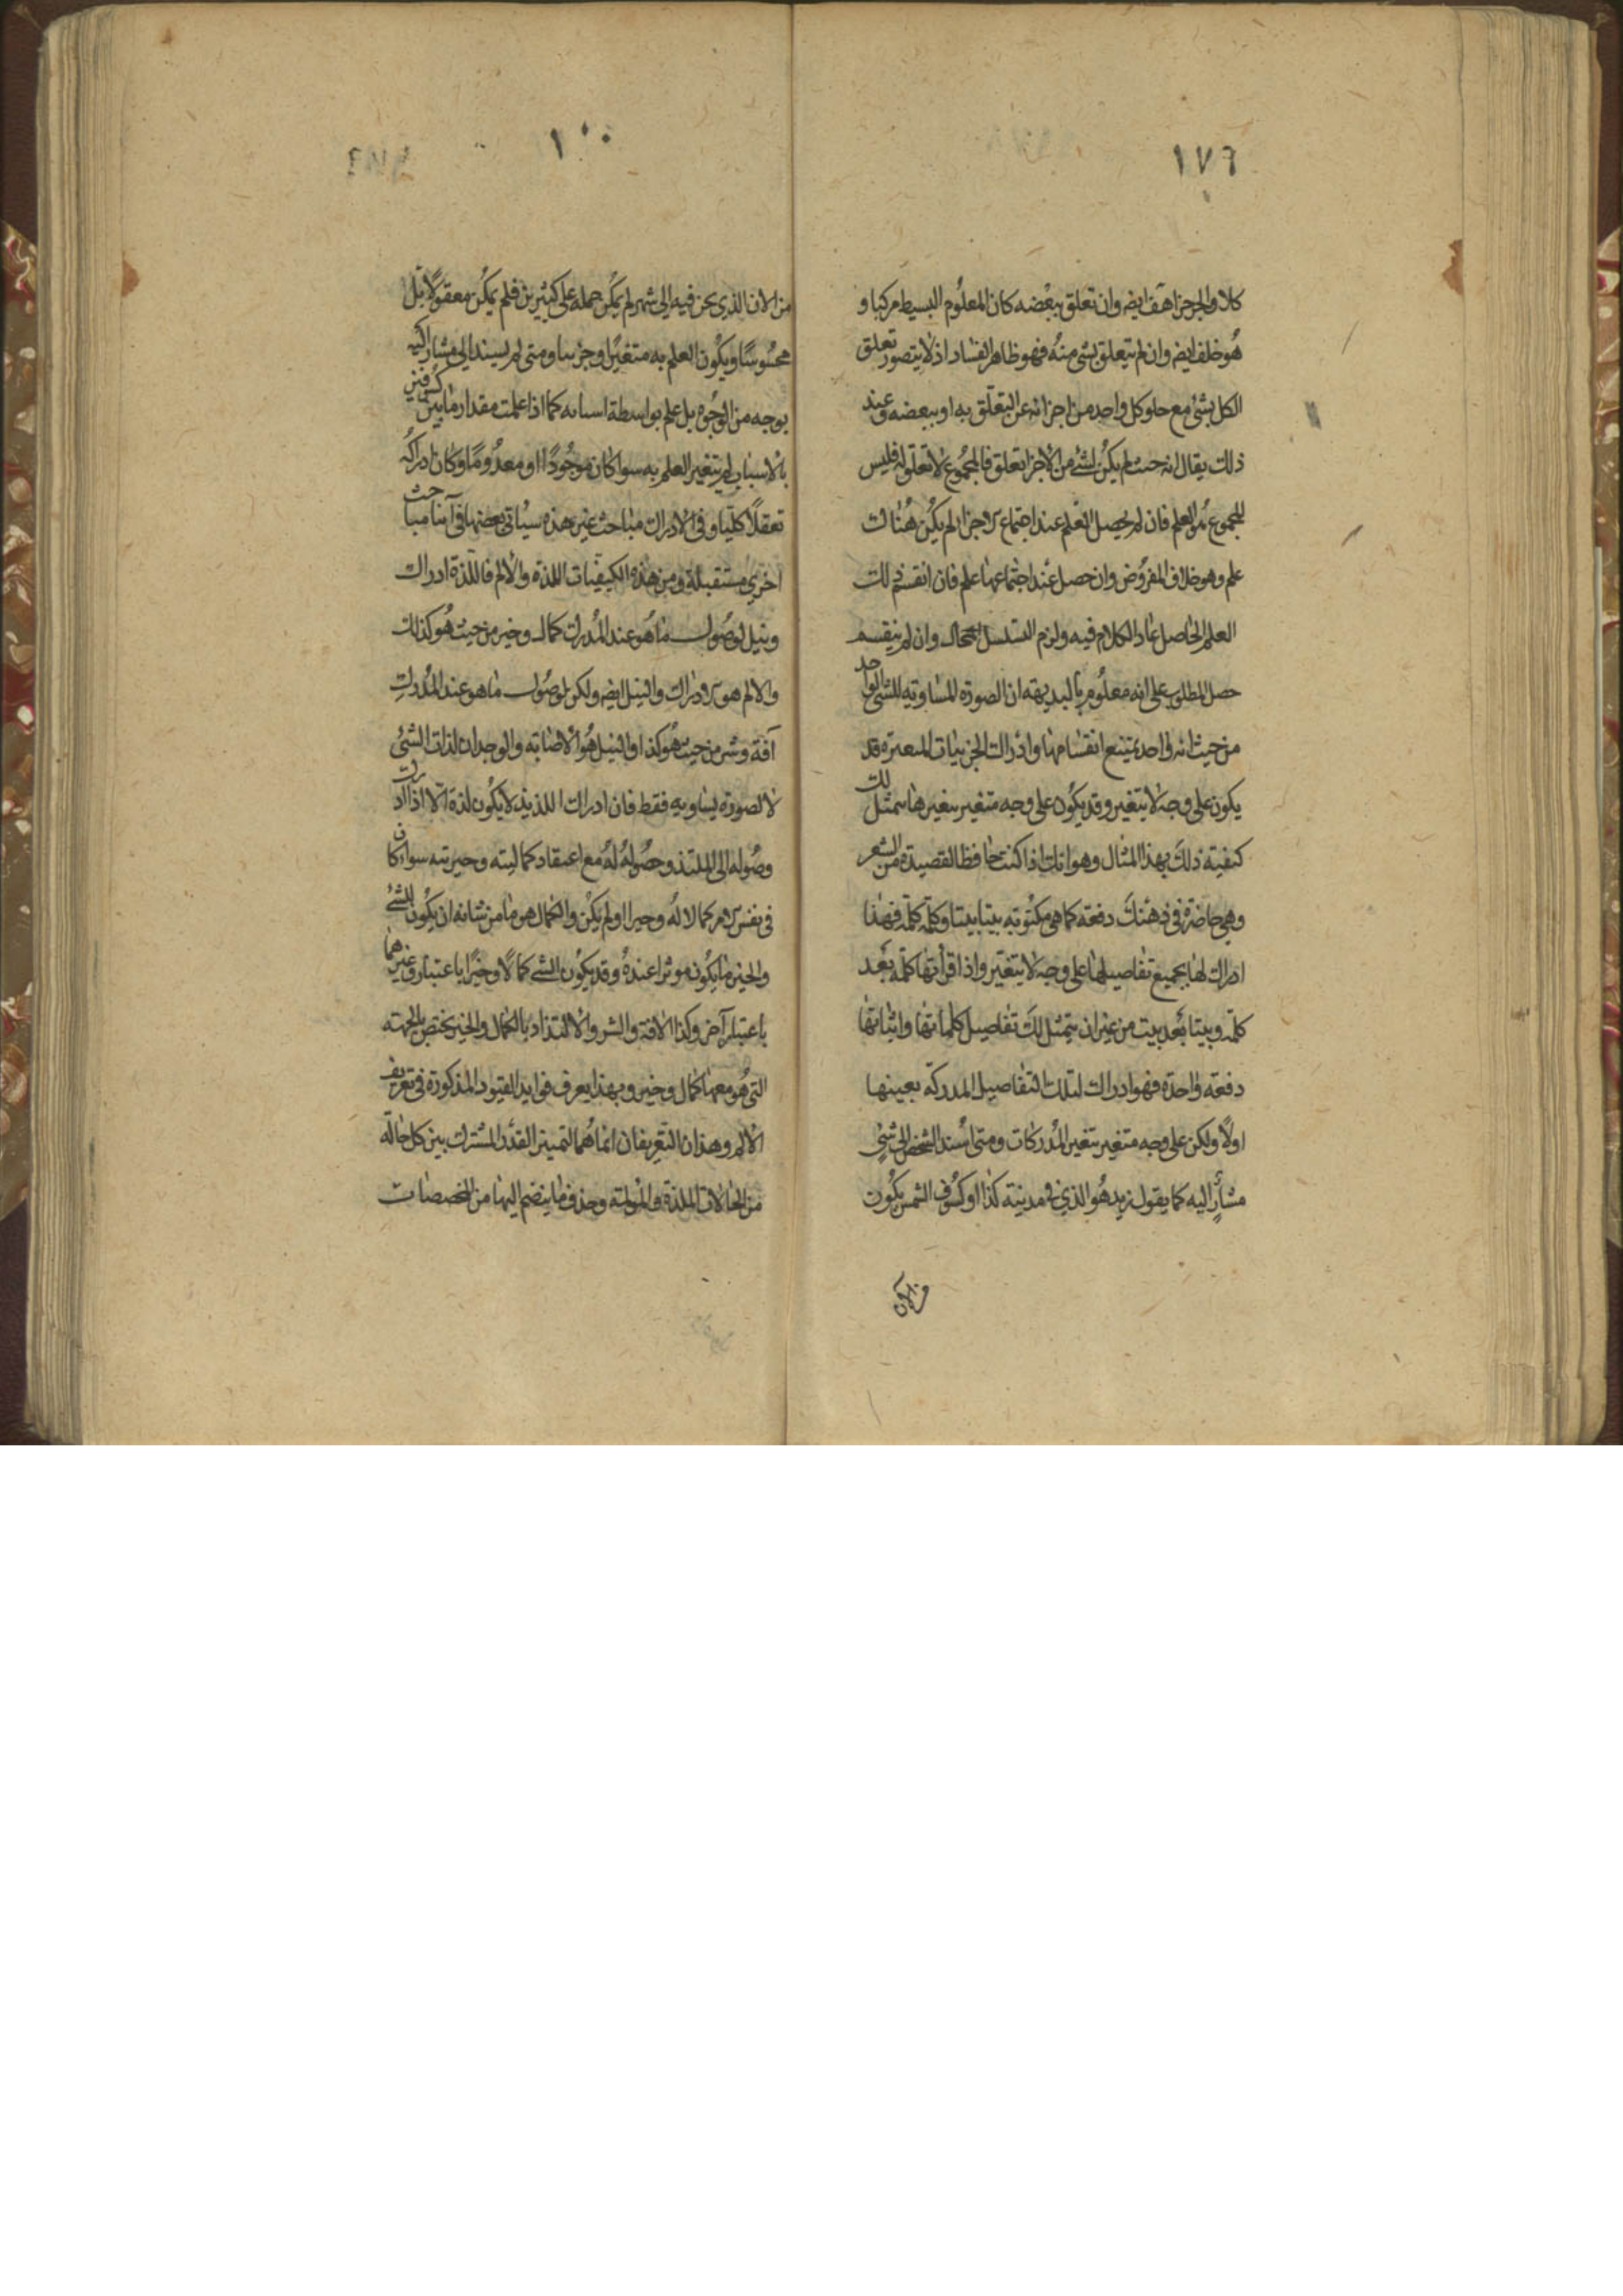 ١٧٦
كلا والجز جزا هف ايضه وان تعلق ببعضه كان المعلوم البسيط مركبا و
هو خلف ايضه وان لم يتعلق بشى منه فهو ظاهر الفساد اذ لا يتصور تعلق
الكل بشئ مع خلو كل واحد من اجزائه عن التعلق به او ببعضه وعند
ذلك يقال انه حيث لم يكن لشئ من الاجزا تعلق فالمجموع لا تعلق له فليس
المجموع هو العلم فان لم يحصل العلم عند اجتماع الاجزا لم يكن هناك
علم وهو خلاف المفروض وان حصل عند اجتماعها علم فان انقسم ذلك
العلم الحاصل عاد الكلام فيه ولزم التسلسل المحال وان لم ينقسم
حصل المطلوب على انه معلوم بالبديهه ان الصورة المساوية للشئ الواحد
من حيث انه واحد يمتنع انقسامها وادراك الجزئيات المتغيرة قد
يكون على وجه لا يتغير وقد يكون على وجه متغير بتغيرها يتمثل لك
كيفية ذلك بهذا المثال وهو انك اذا كنت حافظا لقصيدة من الشعر
وهي حاضرة في ذهنك دفعة كما هي مكتوبه بيتا بيتا وكلمة كلمة فهذا
ادراك لها بجميع تفاصيلها على وجه لا يتغير واذا قراتها كلمة بعد
كلمة وبيتا بعد بيت من غير ان يتمثل لك تفاصيل كلماتها وابياتها
دفعة واحدة فهو ادراك لتلك التفاصيل المدركة بعينها
اولا ولكن على وجه متغير بتغير المدركات ومتى اسند الشخص الى شئ
مشار اليه كما يقول زيد هو الذي في مدينة كذا او كسوف الشمس يكون
من الان
١٠٠
من الان الذي نحن فيه الى شهر لم يمكن حمله على كثيرين فلم يكن معقولا بل
محسوسا ويكون العلم به متغيرا وجزييا ومتى لم يسند الى مشار اليه
بوجه من الوجوه بل علم بواسطة اسبابه كما اذا علمت مقدار ما بين كسوفين
بالاسباب لم يتغير العلم به سوا كان موجودا او معدوما وكان ادراكه
تعقلا كليا وفي الادراك مباحث غير هذه سياتي بعضها في آينا مباحث
اخري مستقبلة ومن هذه الكيفيات اللذة والالم فاللذة ادراك
ونيل لوصول ما هو عند المدرك كمال وخير من حيث هو كذلك
والالم هو ادراك والنيل ايضه ولكن لوصول ما هو عند المدرك
آفة وشر من حيث هو كذا والنيل هو الاصابة والوجدان لذات الشئ
لا لصورة يساويه فقط فان ادراك اللذيذ لا يكون لذة الا اذا ادرك
وصوله الى الملتذ وحصوله له مع اعتقاد كماليته وخيريته سوا كان
في نفس الامر كمالا له وخيرا او لم يكن والكمال هو ما من شانه ان يكون للشئ
والخير ما يكون موثرا عنده وقد يكون الشئ كمالا وخيرا باعتبار وغيرهما
باعتبار آخر وكذا الافة والشر والالتذاذ بالكمال والخير يختص بالجهة
التي هو معها كمال وخير وبهذا يعرف فوايد القيود المذكورة في تعريف
الالم وهذان التعريفان انما هما لتمييز القدر المشترك بين كل حالة
من الحالات الملذة والمولمة وحذف ما ينضم اليها من المخصصات